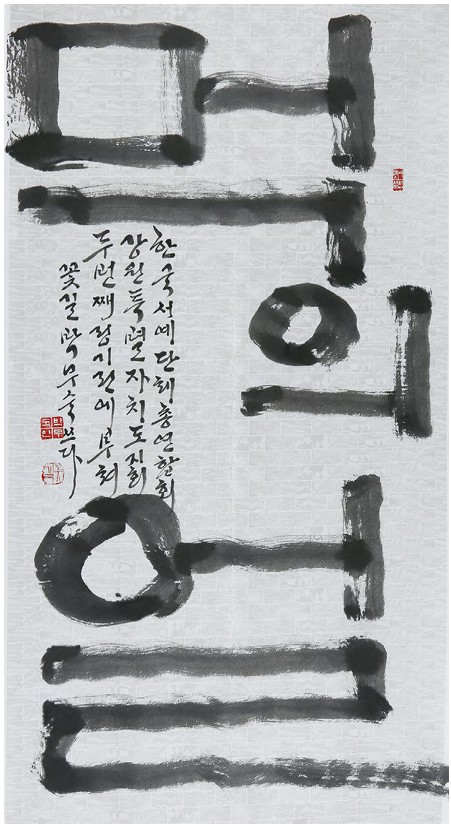 먹의 얼
한국서예단체총연합회
강원특별자치도지회
두번째 정기전에 부쳐
꽃길 박무숙 쓰다